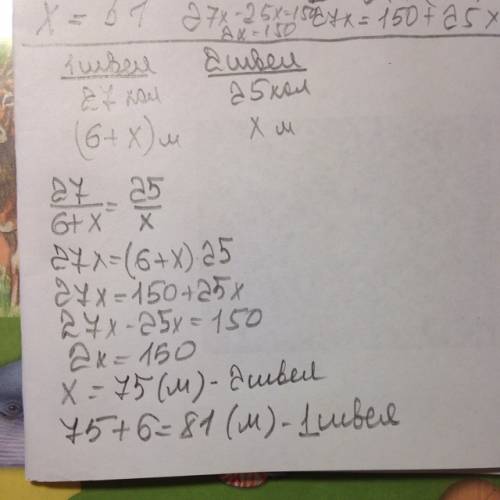 27x - 25x = 150 27x = 150 + 25x
2x = 150
1швея 2швея
27кол 25кол
(6+x)м xм
27/6+x = 25/x
27x=(6+x)·25
27x=150+25x
27x-25x=150
2x=150
x=75(м)-2швея
75+6=81(м)-1швея